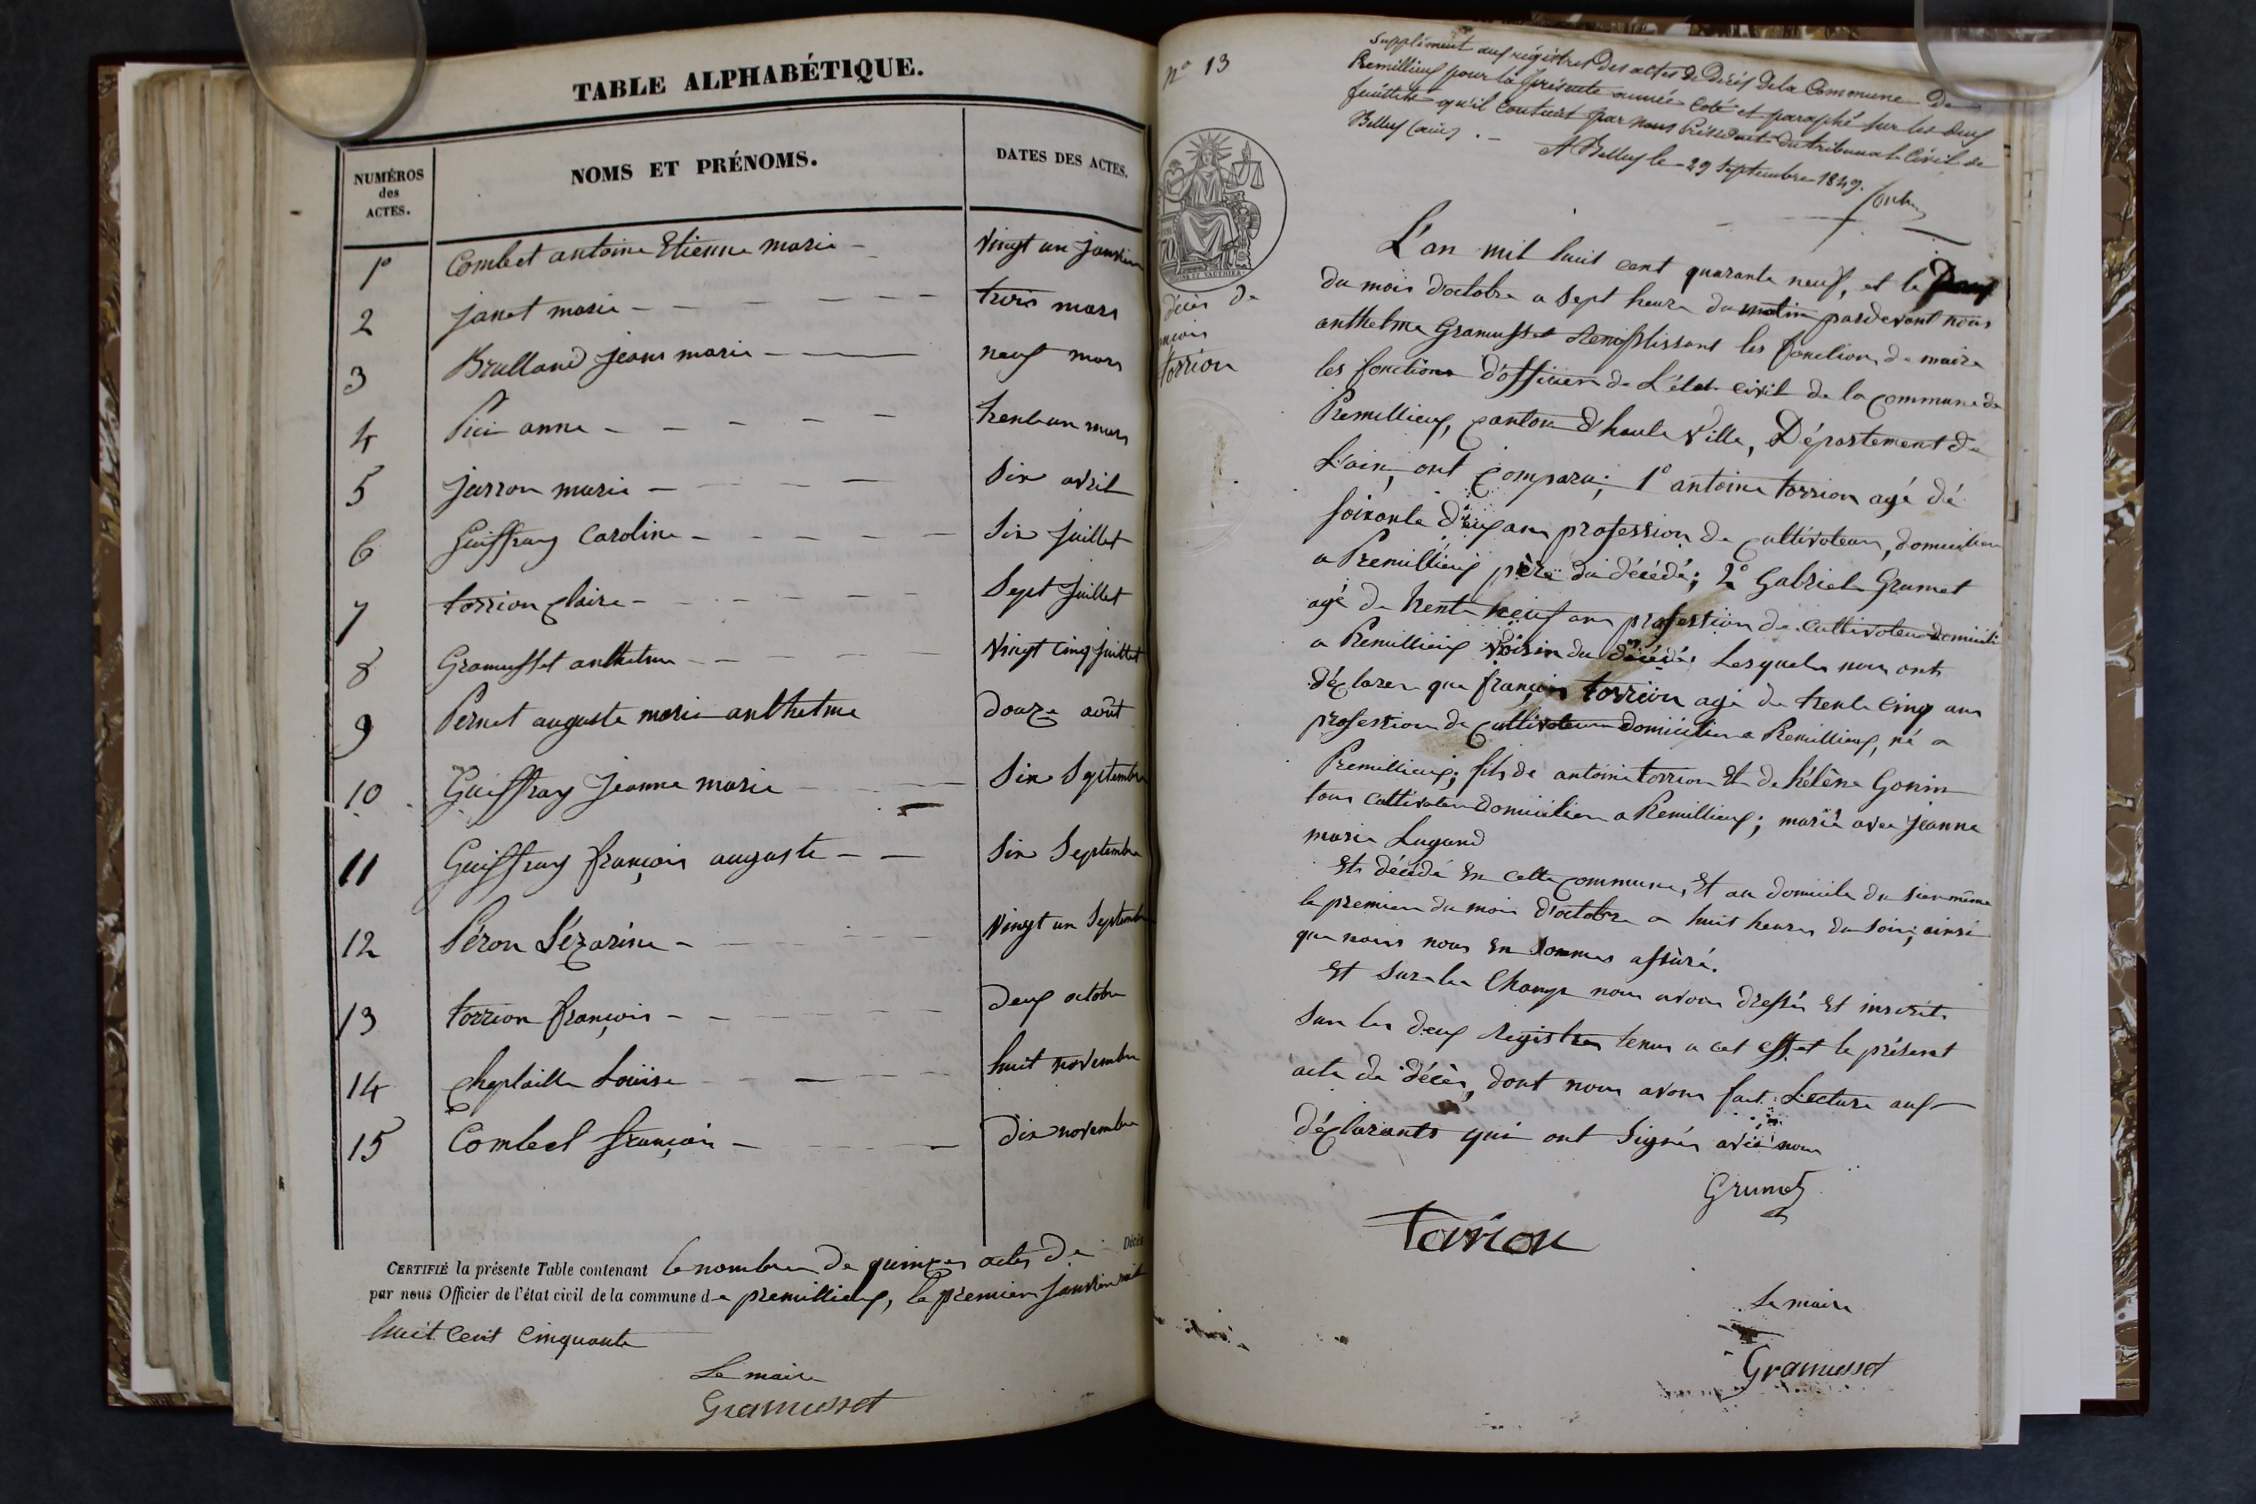 TABLE ALPHABÉTIQUE.
NUMÉROS des ACTES.
NOMS ET PRÉNOMS.
DATES DES ACTES.
1º Combet antoine Etienne marie - vingt un janvier
2 janet marie - - - - - - - trois mars
3 Brulland jeans marie - - neuf mars
4 Pici anne - - - - - trente un mars
5 jarron marie - - - - - Six avril
6 Guiffray Caroline - - - - - Six juillet
7 torrion Claire - - - - - - Sept juillet
8 Gramusset anthelme - - - - - Vingt Cinq juillet
9 Pernet auguste marie anthelme douze août
10 Guiffray jeanne marie - - - - Six Septembre
11 Guiffray françois auguste - - Six Septembre
12 Péron Sézarine - - - - - - Vingt un Septembre
13 torrion françois - - - - - - - deux octobre
14 Chaplaille Louise - - - - - huit novembre
15 Combet françois - - - - dix novembre
CERTIFIÉ la présente Table contenant le nombre de quinzes actes de Décès
par nous Officier de l'état civil de la commune de premillieux, le premier janvier mil
huit cent cinquante
Le maire
Gramusset
nº 13
Supplément aux régistres des actes de Décès de la Commune de
Premillieux pour la présente année coté et paraphé sur les deux
feuillets qu'il contient par nous Président du tribunal Civil de
Belley (ain). -
A Belley le 29 Septembre 1849.
décès de
torrion
L'an mil huit cent quarante neuf, et le Deux
du mois d'octobre a sept heure du matin pardevant nous
anthelme Gramusset Remplissant les fonction de maire
les fonctions d'officier de L'état civil de la commune de
Premillieux, canton d'haute Ville, Département de
L'ain, ont Comparu; 1º antoine torrion agé dé
soixante dix ans profession de Cultivateur, domicilier
a Premillieux père du décédé; 2º Gabriel Grumet
agé de trente neuf ans profession de cultivateur domicili
a Premillieux voisin du décédé; Lesquels nous ont
déclarer que françois torrion agé de trente cinq ans
profession de Cultivateur domicilier a Premillieux, né a
Premillieux; fils de antoine torrion Et de hélène Gonin
tous cultivateur domicilier a Premillieux; marié avec jeanne
marie Lugand
Et décédé En cette Commune, Et au domicile du sien même
le premier du mois d'octobre a huit heures du soir; ainsi
que nous nous En Sommes assuré.
Et Sur le Champ nous avons dressés Et inscrits
Sur les deux Registres tenus a cet effet le présent
acte de décès, dont nous avons fait Lecture aux
déclarants qui ont Signés avec nous
Grumet
Torrion
Le maire
Gramusset